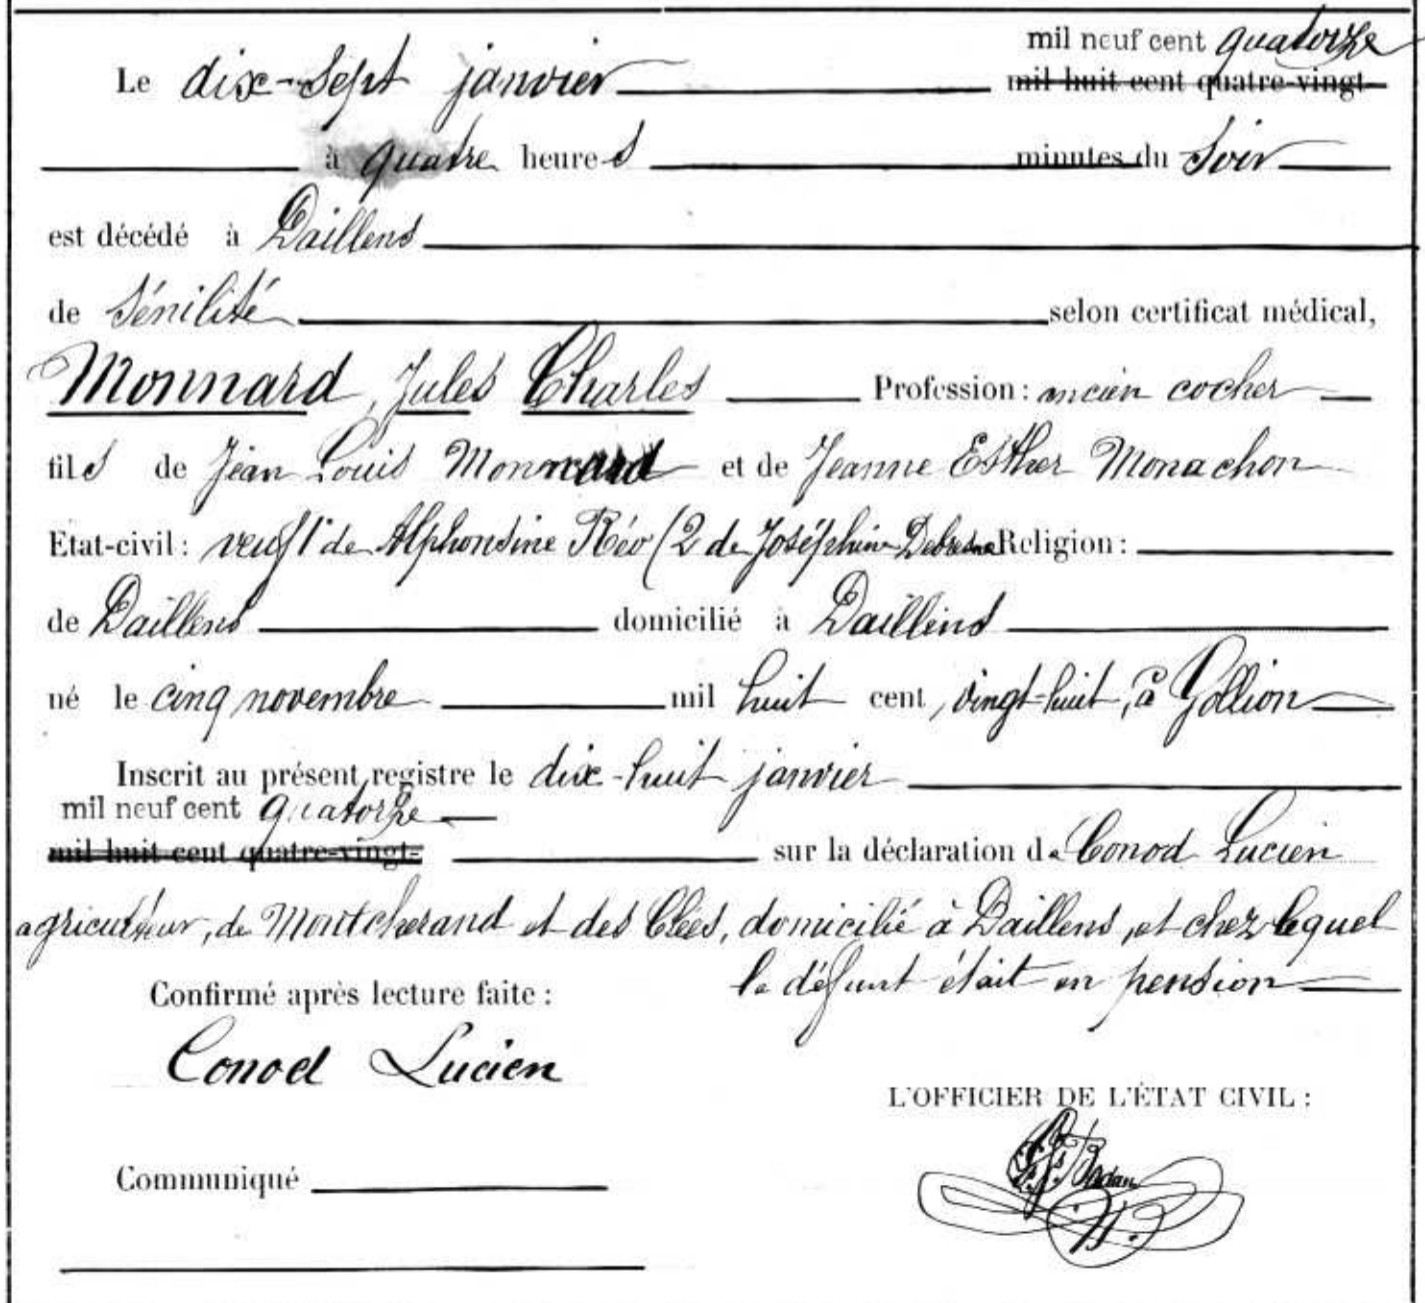 mil neuf cent quatorze
Le dix-sept janvier mil huit cent quatre-vingt-
à quatre heures minutes du soir
est décédé à Daillens
de Sénilité selon certificat médical,
Monnard, Jules Charles Profession : ancien cocher
fils de Jean Louis Monnard et de Jeanne Esther Monachon
Etat-civil : veuf 1° de Alphonsine Réo (2 de Joséphine Religion :
de Daillens domicilié à Daillens
né le cinq novembre mil huit cent, vingt-huit, à Gollion
Inscrit au présent registre le dix-huit janvier
mil neuf cent quatorze
mil huit cent quatre-vingt- sur la déclaration de Conod Lucien
agriculteur, de Montcherand et des Clées, domicilié à Daillens, et chez lequel
le défunt était en pension
Confirmé après lecture faite :
Conod Lucien
L'OFFICIER DE L'ÉTAT CIVIL :
Communiqué